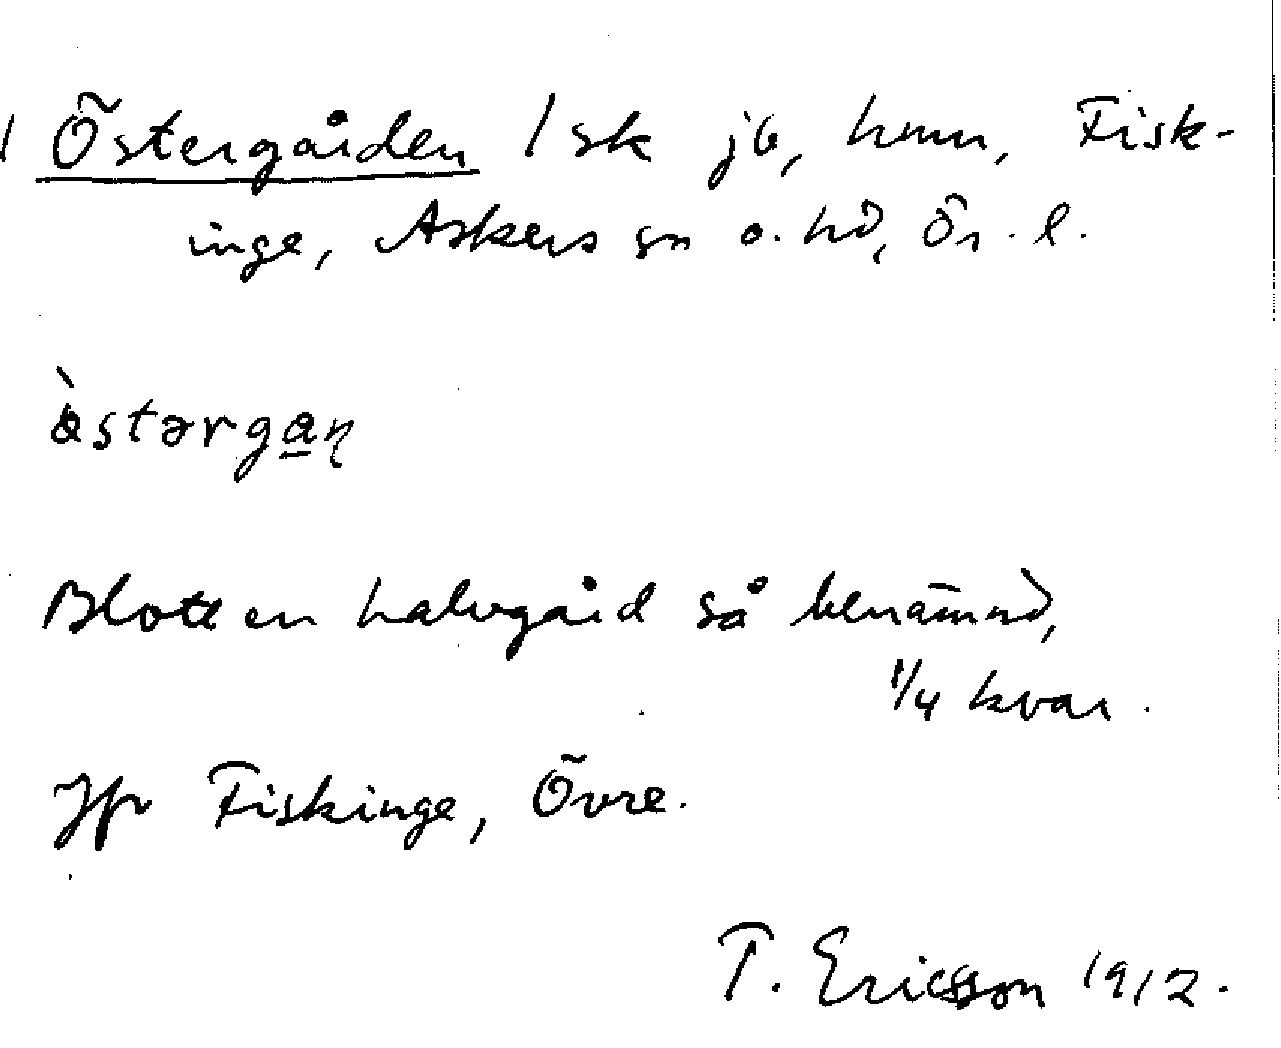 Östergården 1 sk jb, hmn, Fisk-
inge, Askers sn o. hd, Ör. l.
östərgan
Blott en halvgård så benämnd,
1/4 kvar.
Jfr Fiskinge, Övre.
T. Ericsson 1912.